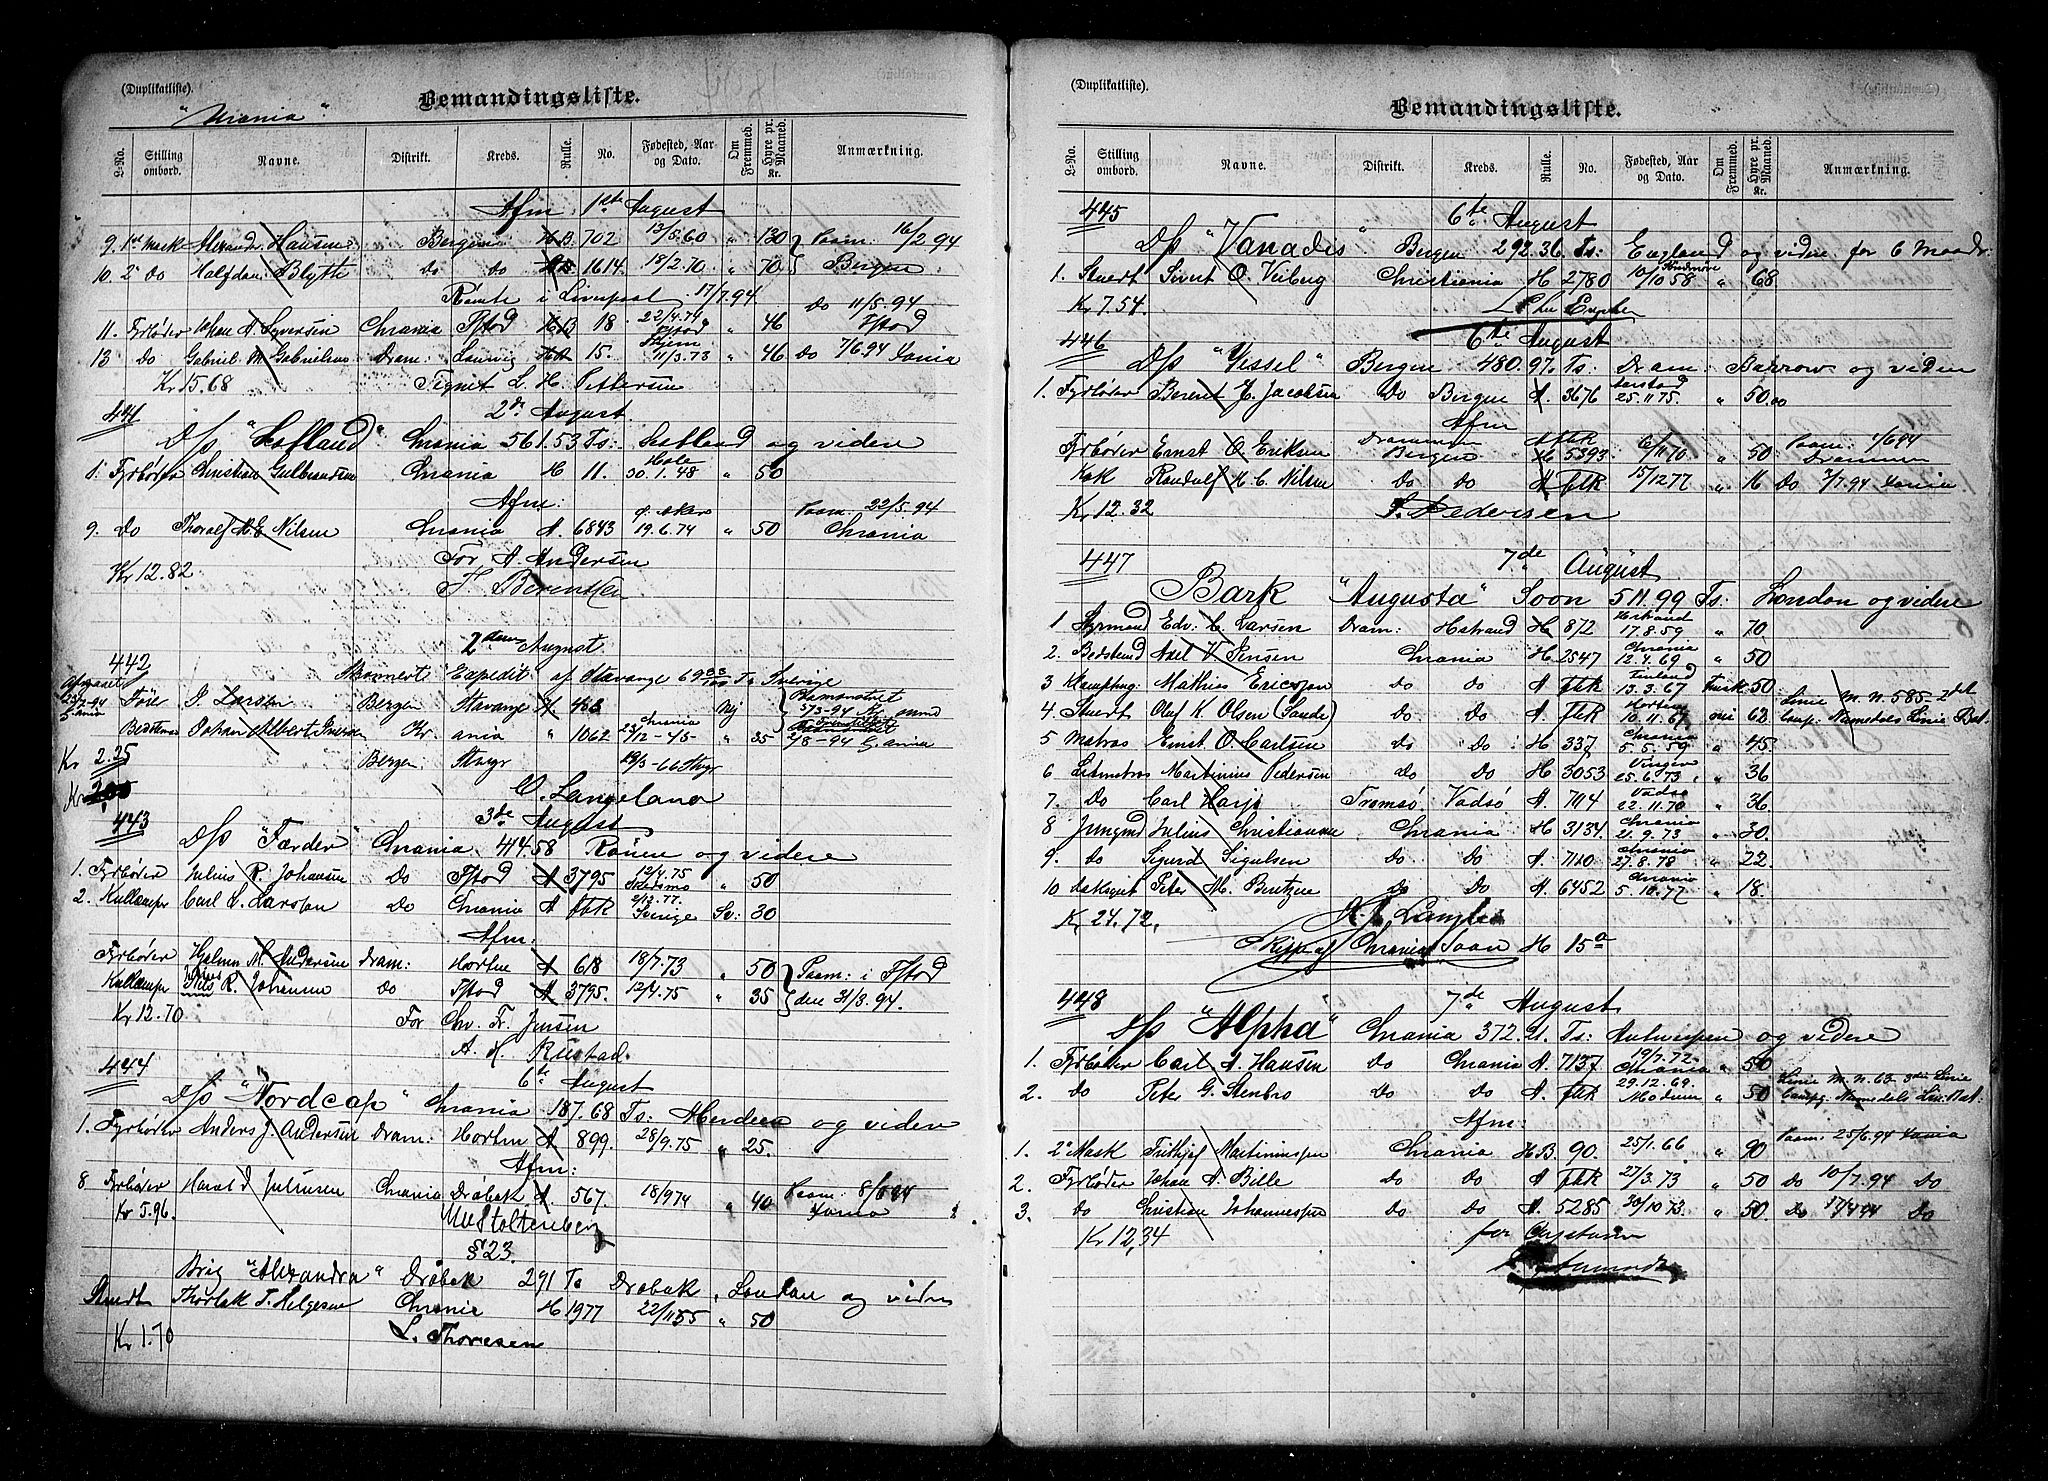 (Duplikatliste).
Bemandingsliste.
"Urania".
L-No. Stilling ombord. Navne. Distrikt. Kreds. Rulle. No. Fødested, Aar og Dato. Om Fremmed. Hyre pr. Maaned. Kr. Anmærkning.
Afm 1ste August
9. 1st Mask Alexander Hansen Bergen H B. 702 13/8.60 " 130 Paam: 16/2 94
10. 2 Do Halfdan Blytt Do Do 1614. 18/2.70 " 70 Bergen
Rømte i Liverpool 17/7.94 Do 11/5.94
11. Fyrbøder Johan A. Syversen Chrania Fstad B 18 22/4.79 Fstad " 46 Fstad
13 Do Gabriel M Gabrielsen Dram: Laurvig 15. 11/3.73 " 46 Do 7/6.94 Xania
Kr 15.68 Tegnet L. H. Pettersen
441 2den August
D/S "Lofland" Chrania 561.53 Ts: Lofland og videre
1. Fyrbøder Christian Gulbrandsen Chrania H 11. Hole 30.1.48 " 50
Afm:
9. Do Thoralf M. E Nilsen Chrania A. 6843 Aker 19.6.74 " 50 Paam: 22/5.94 Chrania
Kr 12.82 For A. Andersen
H Berentsen
442 2den August
Skonnert Expedit af Stavanger 69 Ts Sverige
J. Larsen Bergen Stavanger 488 Nej
Johan Albert Kr. ania " 1062 Chrania 22/12-45 " 35 2/8-94 Chania
Kr 2.25 Bergen Stvgr 19/3-66 Stvgr
O. Langeland
443 3de August
D/S "Færder" Chrania 414.58 Rouen og videre
1. Fyrbøder Julius R. Johansen Do Fstad A 3795 12/4.75 " 50
2. Kullemper Carl L. Larsen Do Chrania A fbk 2/12.77. Sverige Sv: 30
Afm:
Fyrbøder Hjalmar M. Andersen Dram: Horten A 618 18/7.73 " 50 Paam: i Fstad
Kullemper Julius R. Johansen Do Fstad A 3795. 12/4.75 " 35 den 31/3.94.
Kr 12.70 For Chr. Fr. Jensen
A. H. Rustad
444 6te August
D/S "Nordcap" Chrania 187.68 Ts: og videre
1. Fyrbøder Anders J. Andersen Dram: Horten A 899. 28/9.75 " 25.
Afm:
8 Fyrbøder Harald Julnesen Chrania Drøbak A 567. 18/9 74 " 40 Paam: 8/6 94 Xania
Kr 5.96. Stoltenberg
§ 23.
Brig "Alexandra" Drøbak 291 Ts Drøbak, London og videre
Stuert Thorleik T. Helgesen Chrania H 1977 22/11 55 " 50
Kr 1.70 L. Thoresen
(Duplikatliste).
Bemandingsliste.
L-No. Stilling ombord. Navne. Distrikt. Kreds. Rulle. No. Fødested, Aar og Dato. Om Fremmed. Hyre pr. Maaned. Kr. Anmærkning.
445 6te August
D/S "Vanadis" Bergen 292.36 Ts: England og videre for 6 Maaneder
1. Stuert Sivert O. Veiberg Christiania H 2780 10/10 58 " 68
Kr 7.54.
446 6te August
D/S "Yssel" Bergen 480.97. Ts: Dram: Barrow og videre
1. Fyrbøder Berent J. Jacobsen Do Bergen A. 3676 25.11.75. " 50.00
Afm
Fyrbøder Ernst O. Eriksen Drammen Bergen 5393 6/11 70 " 50 Paam: 1/6 94 Drammen
Kok Randulf H. C. Nilsen Do Do A fbk 15/12 77 " 16 Do 3/7.94 Xania
Kr 12.32 Pedersen
447 7de August
Bark "Augusta" Soon 511.99 Ts: London og videre
1 Styrmand Edv. C. Larsen Dram: Hstrand H 872 17.8.59 " 70
2. Bedstmd Axel V. Jensen Chrania H 2547 Chrania 12.4.69 " 50
3 Mathias Ericsson Do Do A. fbk Finland 13.3.67 Finsk 50.
4. Stuert Olaf K. Olsen (Sande) Do Do A. fbk Horten 10.11.67 nei 62 Linie M. N. 585-2det Comp. Namsdals Linie Bat.
5 Matros Ernst O. Carlsen Do Do H 337 Chrania 5.5.59 " 45.
6 Letmatros Martinius Pedersen Do Do H 3053 Vinger 25.6.73 " 36
7. Do Carl Harjo Tromsø Vadsø A. 7114 Vadsø 22.11.70 " 36
8 Jungmd Julius Christiansen Chrania H 3134. Chrania 21.9.73 " 30.
9. Do Sigurd Sigulsen Do Do A. 7110 Chrania 27.8.78 " 22.
10 Peter M. Berntzen Do Do A. 6452 Chrania 5.10.77 " 18.
Kr 24.72.
Skipp af Chrania Soon H 15a
448 7de August
D/S "Alpha" Chrania 372.21. Ts: Antwerpen og videre
1. Fyrbøder Carl A. Hansen Do Chrania A. 7137 19/7.72. Chrania " 50
2. Do Peter G. Stenbro Do Do A. fbk 29.12.69. Modum " 50 Linie M. N. 63 3die Linie Compg. Namsdals Lin: Bat.
Afm:
1. 2 Mask Frithjof Martiniussen Chrania H B. 90. 25/1.66 " 90 Paam: 25/6.94 Xania
2. Fyrbøder Johan A. Bille Do Do A fbk 27/3.73 " 50 Do 10/7.94 Do
3. Do Cristian Johannessen Do Do A. 5285 30/10 73. " 50. Do 17/4 94 Do
Kr 12,34 for Captainen